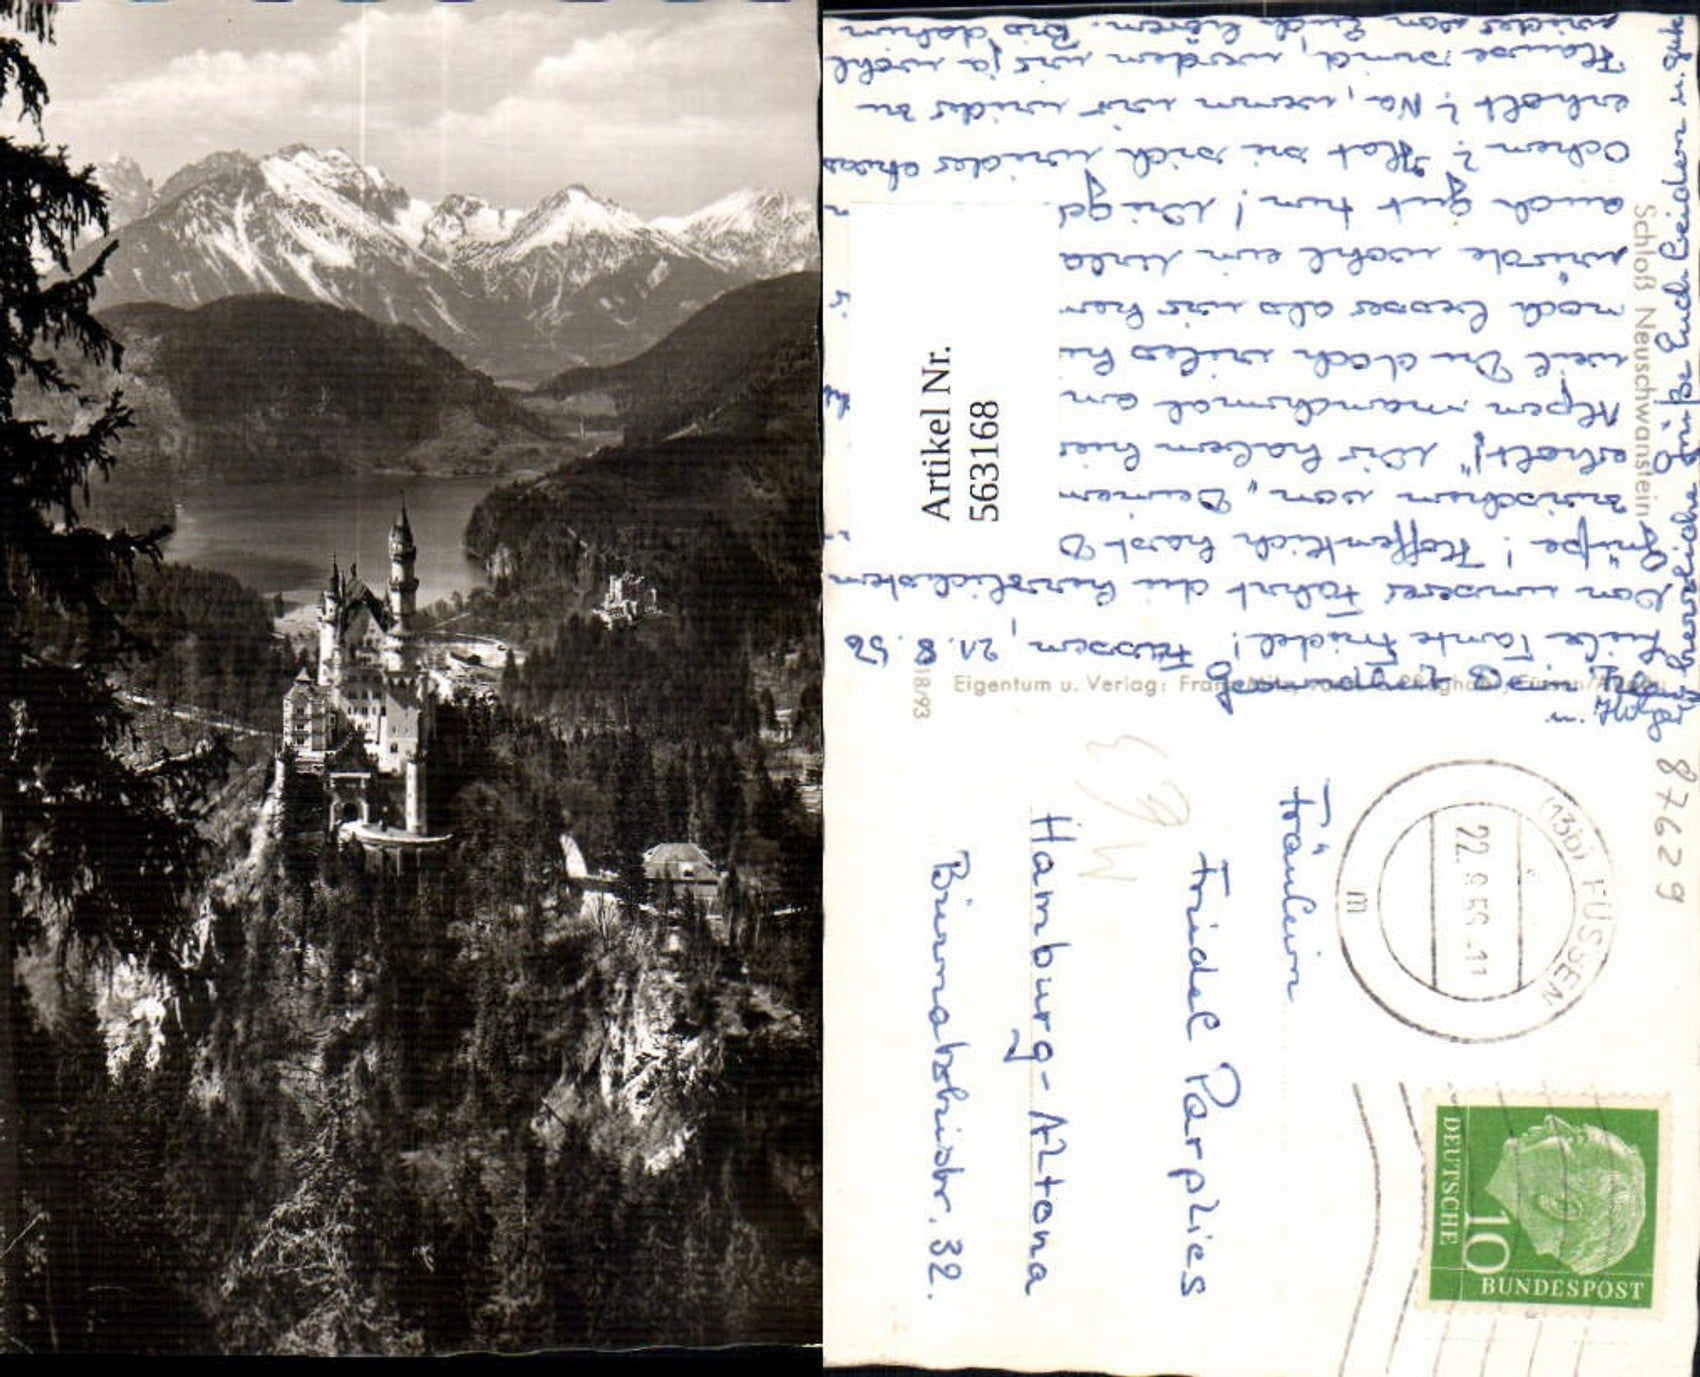 Liebe Tante Friedel! Füssen, 21.8.56
Von unserer Fahrt die herzlichsten
Grüße! Hoffentlich hast D
inzwischen von „Deinen
erholt!" Wir haben hier
Alpen manchmal an
weil Du doch vieles hi
noch besser als wir ken
würde wohl ein Urla
auch gut tun! Wie g
Ochem? Hat sie sich wieder etwas
erholt? Na, wenn wir wieder zu
Hause sind, werden wir ja wohl
wieder von Euch hören. Bis dahin
herzliche Grüße Euch Beiden u. gute
Artikel Nr.
563168
Schloß Neuschwanstein
Eigentum u. Verlag: Franz
18/93
87629
Fräulein
Friedel Parplies
Hamburg-Altona
Biernatzkistr. 32.
(13b) FÜSSEN
22.8.56.-11
m
DEUTSCHE
10
BUNDESPOST